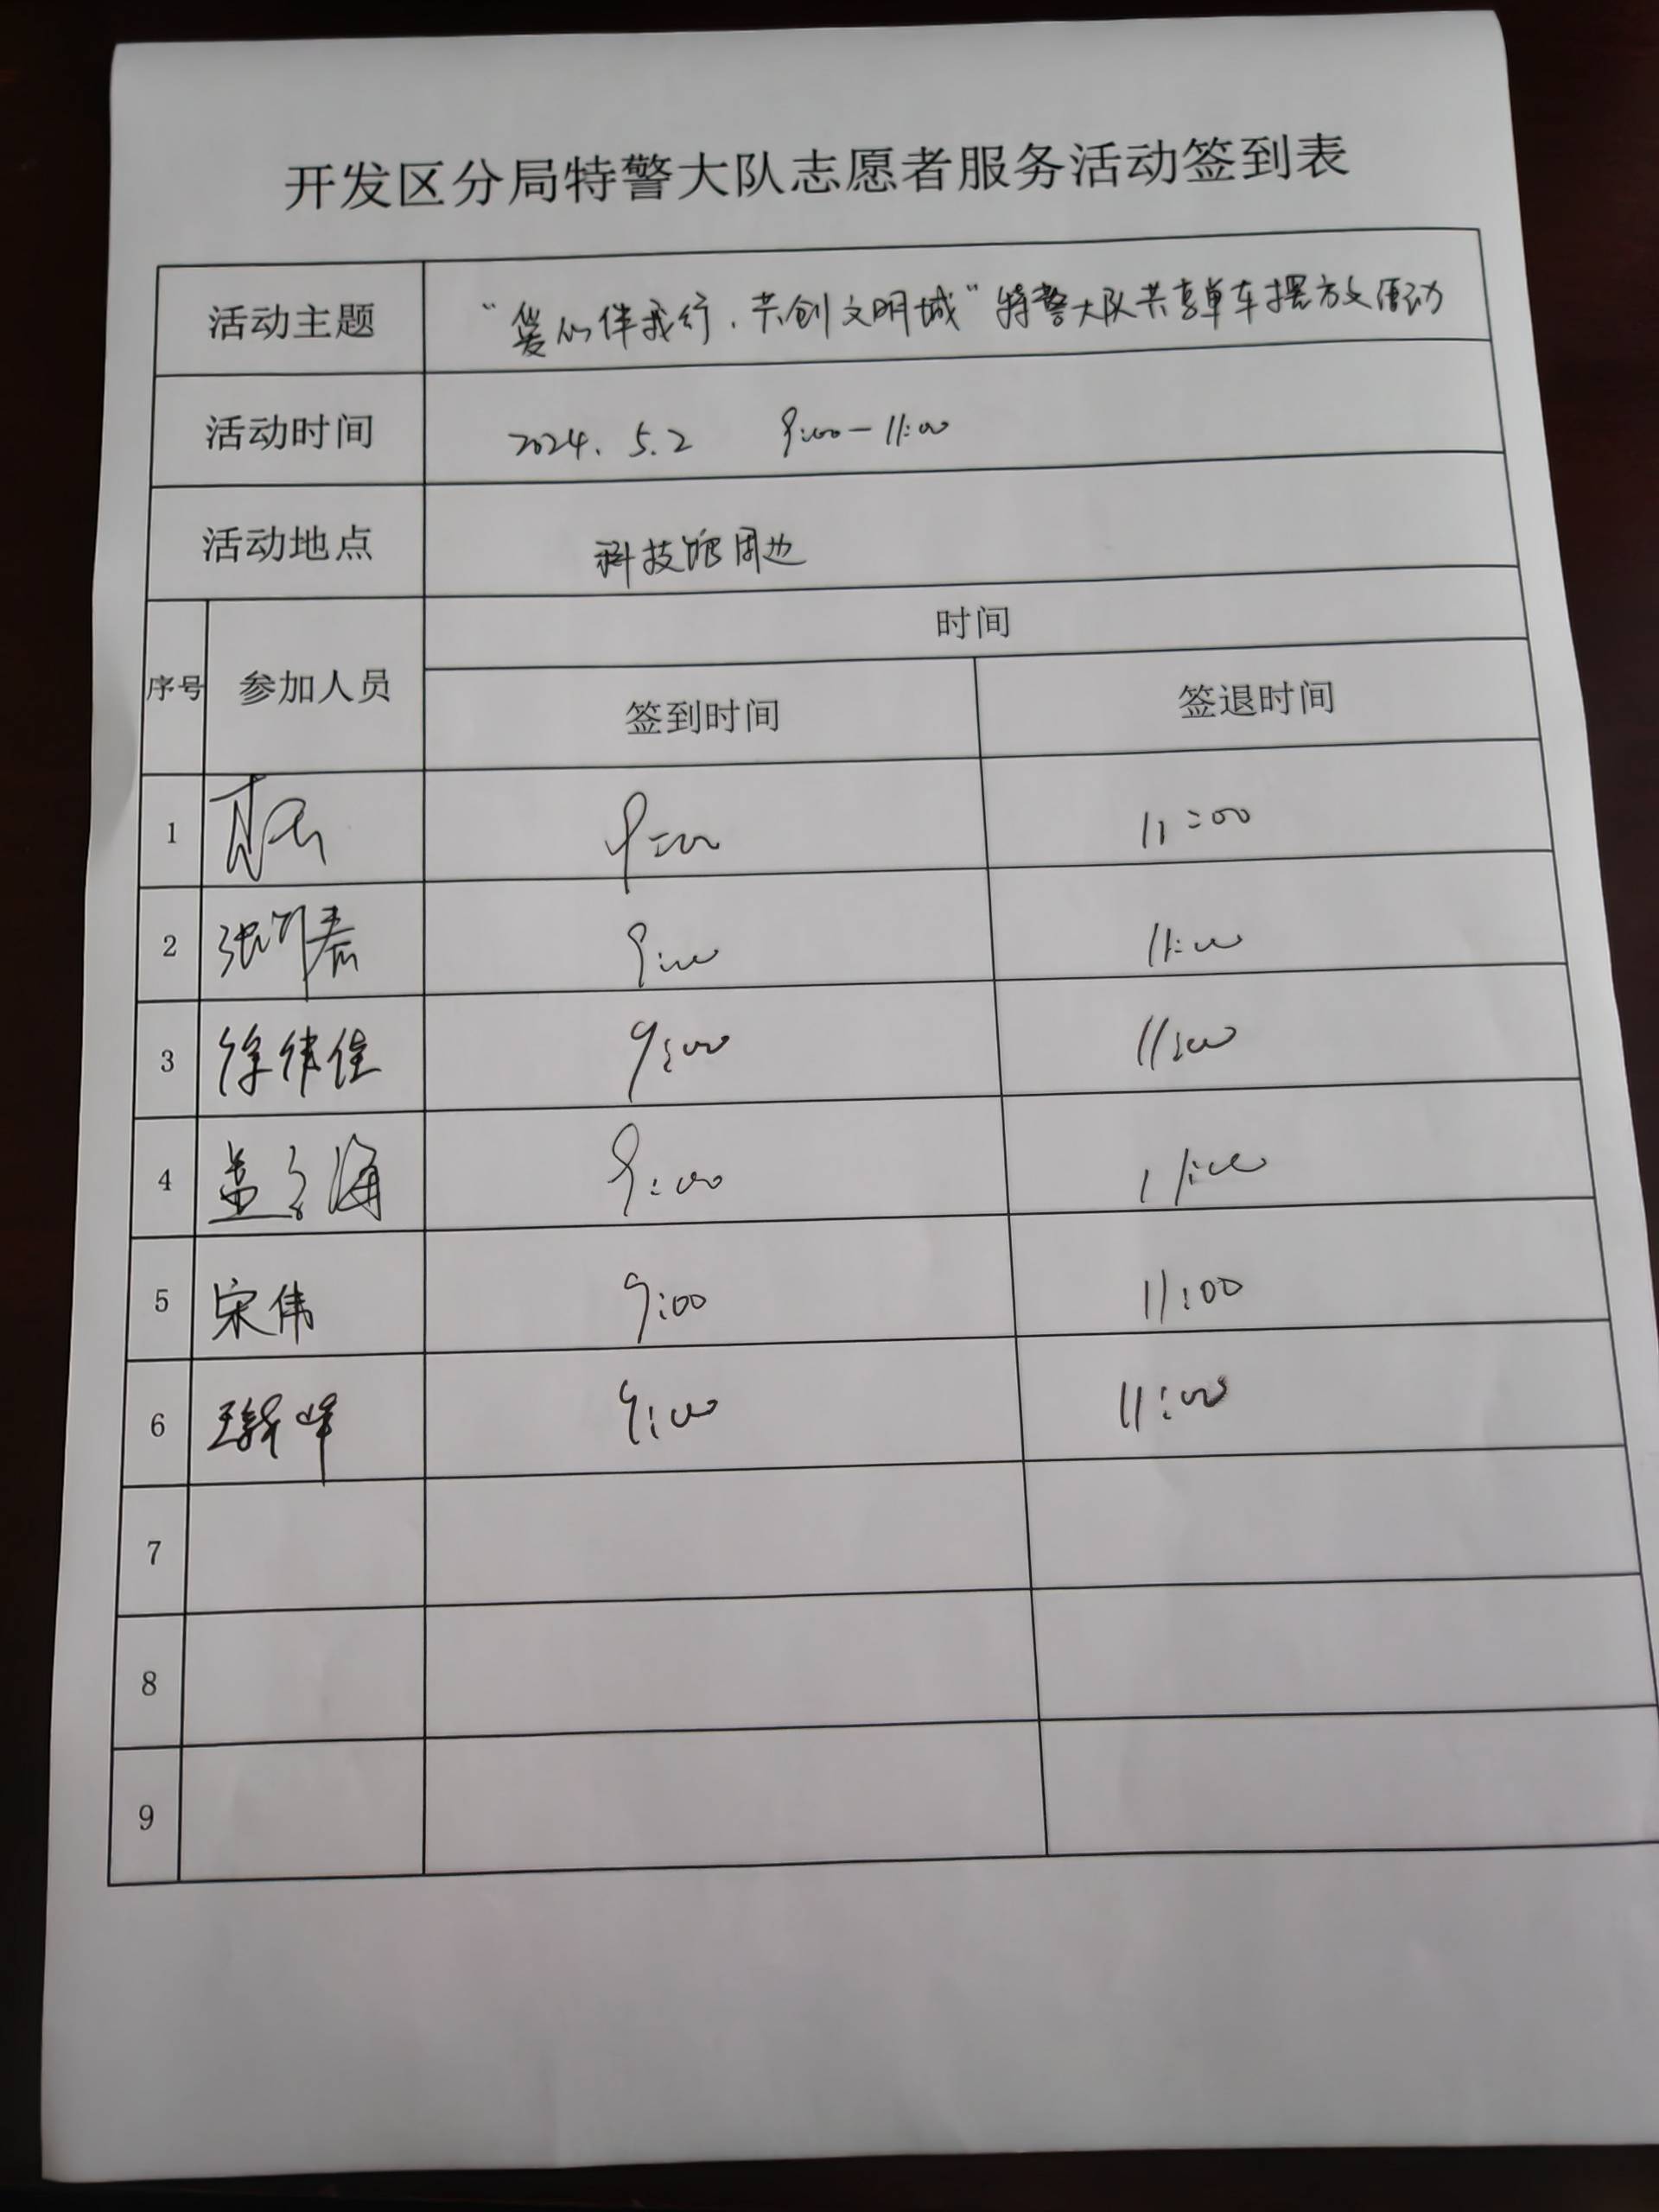 开发区分局特警大队志愿者服务活动签到表
活动主题 “爱心伴我行，共创文明城”特警大队共享单车摆放活动
活动时间 2024.5.2 9:00—11:00
活动地点 科技馆周边
时间
序号 参加人员
签到时间 签退时间
1 9:00 11:00
2 9:00 11:00
3 徐伟佳 9:00 11:00
4 9:00 11:00
5 宋伟 9:00 11:00
6 9:00 11:00
7
8
9